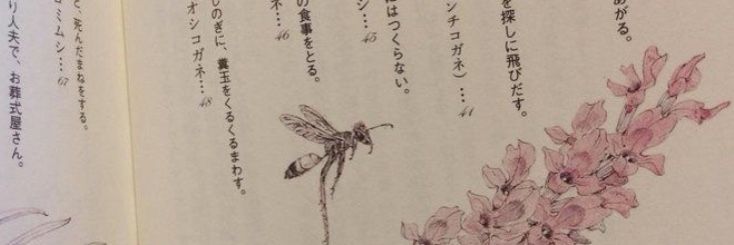 あがる。
を探しに飛びだす。
ンチコガネ）…41
にはつくらない。
シ…45
の食事をとる。
ネ…46
しのぎに、糞玉をくるくるまわす。
オシコガネ…48
と、死んだまねをする。
ミムシ…67
り人夫で、お葬式屋さん。